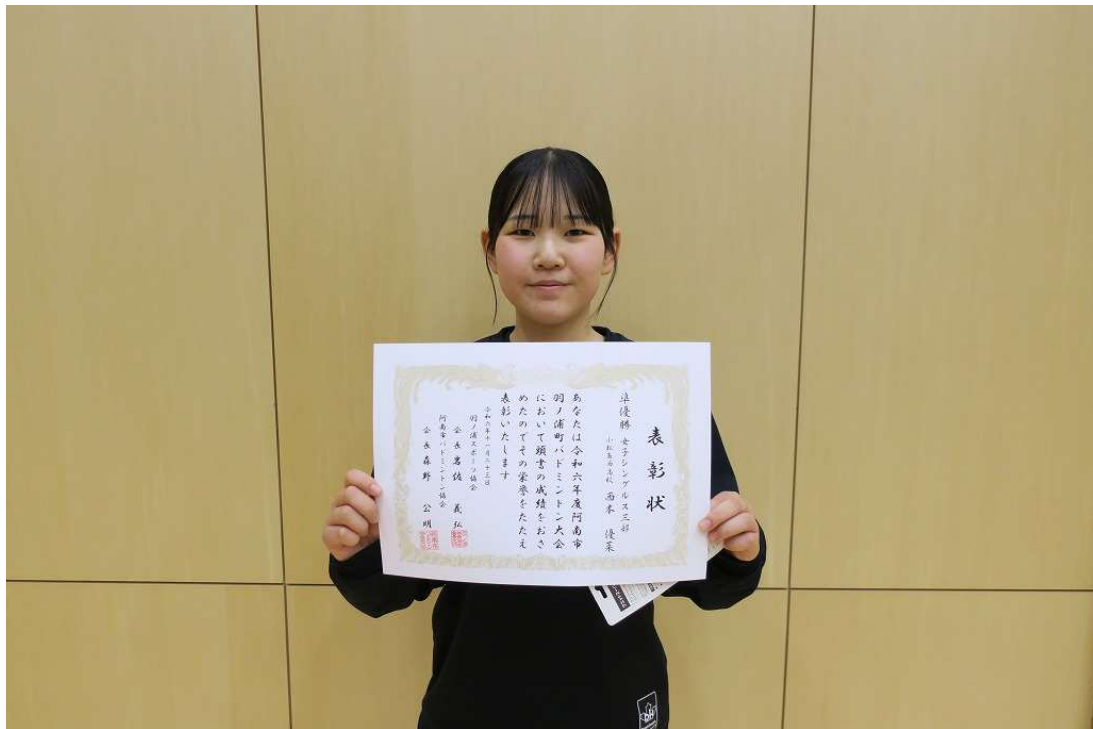 表彰状
準優勝 女子シングルス三部
小松島西高校 西本 優菜
あなたは令和六年度阿南市
羽ノ浦町バドミントン大会
において頭書の成績をおさ
めたのでその栄誉をたたえ
表彰いたします
令和六年十一月二十三日
羽ノ浦スポーツ協会
会長 岩佐 義弘
阿南市バドミントン協会
会長 森野 公明